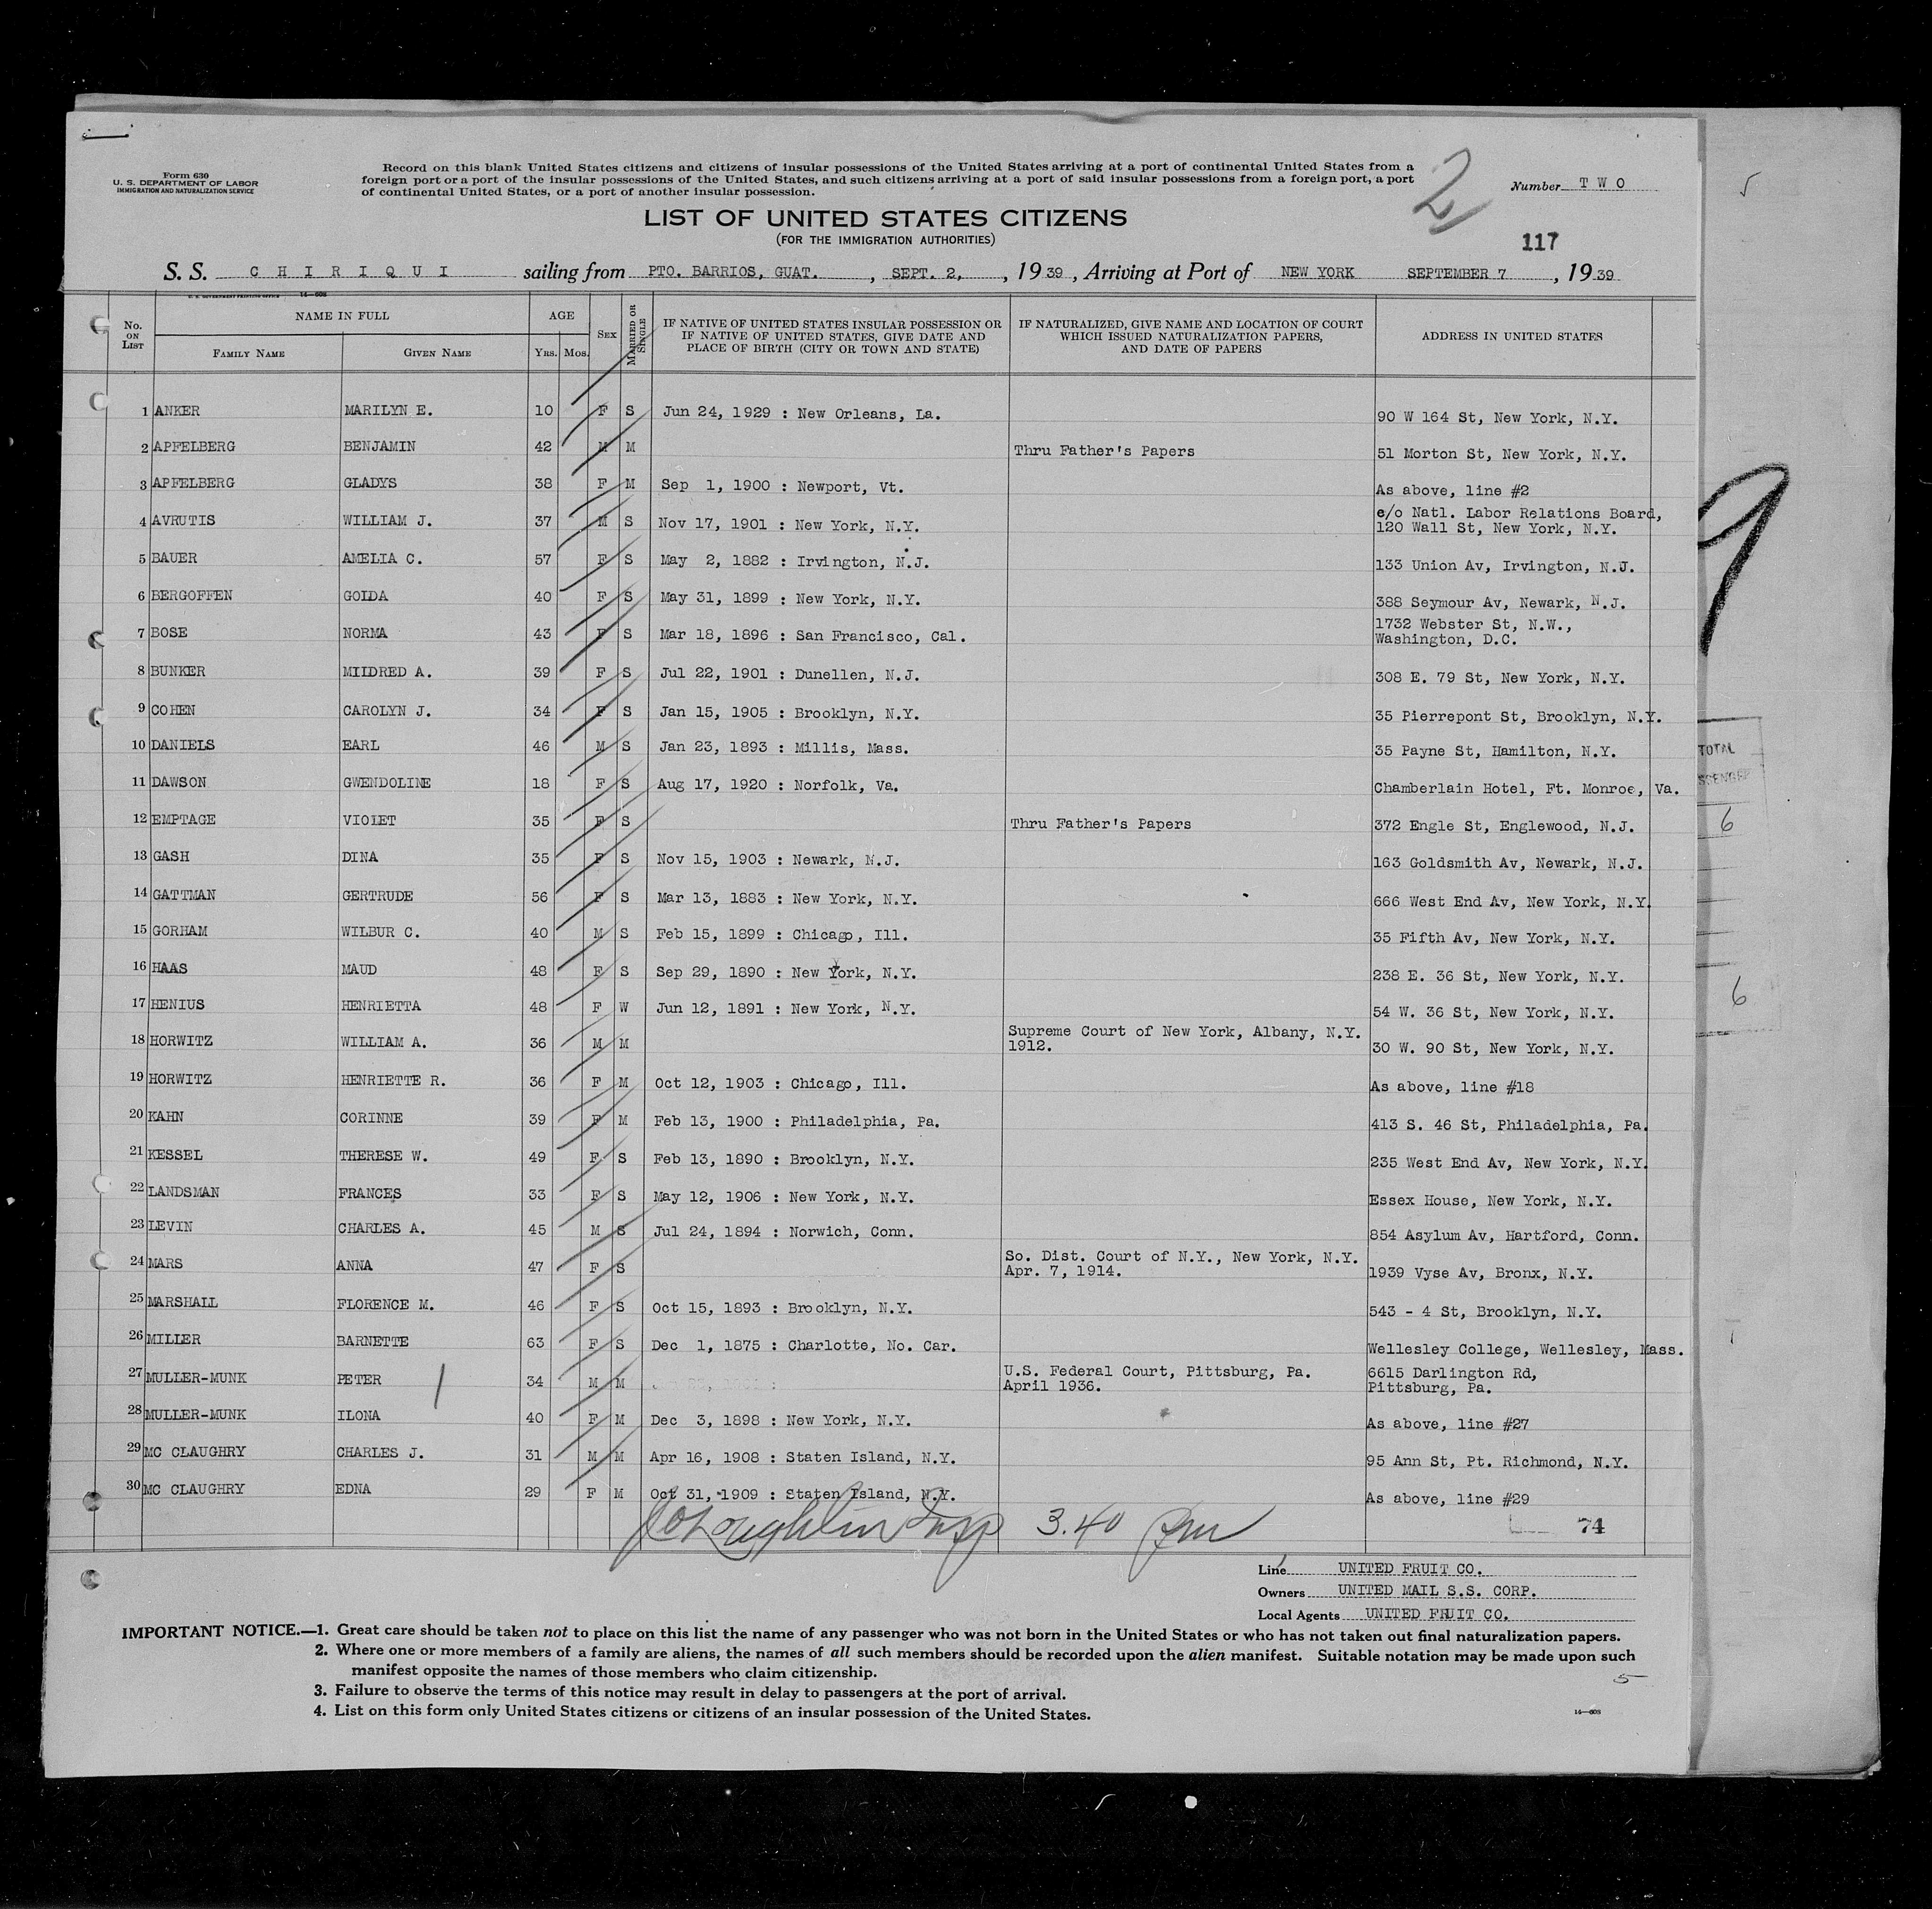 Form 630
U. S. DEPARTMENT OF LABOR
IMMIGRATION AND NATURALIZATION SERVICE
Record on this blank United States citizens and citizens of insular possessions of the United States arriving at a port of continental United States from a
foreign port or a port of the insular possessions of the United States, and such citizens arriving at a port of said insular possessions from a foreign port, a port
of continental United States, or a port of another insular possession.
2
Number T W O
LIST OF UNITED STATES CITIZENS
(FOR THE IMMIGRATION AUTHORITIES)
117
S. S. C H I R I Q U I sailing from PTO. BARRIOS, GUAT. , SEPT. 2, , 19 39 , Arriving at Port of NEW YORK SEPTEMBER 7 , 19 39
U. S. GOVERNMENT PRINTING OFFICE 14—608
No. ON LIST
NAME IN FULL
FAMILY NAME GIVEN NAME
AGE
YRS. MOS.
SEX
MARRIED OR SINGLE
IF NATIVE OF UNITED STATES INSULAR POSSESSION OR
IF NATIVE OF UNITED STATES, GIVE DATE AND
PLACE OF BIRTH (CITY OR TOWN AND STATE)
IF NATURALIZED, GIVE NAME AND LOCATION OF COURT
WHICH ISSUED NATURALIZATION PAPERS,
AND DATE OF PAPERS
ADDRESS IN UNITED STATES
1 ANKER MARILYN E. 10 F S Jun 24, 1929 : New Orleans, La. 90 W 164 St, New York, N.Y.
2 APFELBERG BENJAMIN 42 M M Thru Father's Papers 51 Morton St, New York, N.Y.
3 APFELBERG GLADYS 38 F M Sep 1, 1900 : Newport, Vt. As above, line #2
4 AVRUTIS WILLIAM J. 37 M S Nov 17, 1901 : New York, N.Y. c/o Natl. Labor Relations Board,
120 Wall St, New York, N.Y.
5 BAUER AMELIA C. 57 F S May 2, 1882 : Irvington, N.J. 133 Union Av, Irvington, N.J.
6 BERGOFFEN GOLDA 40 F S May 31, 1899 : New York, N.Y. 388 Seymour Av, Newark, N.J.
7 BOSE NORMA 43 F S Mar 18, 1896 : San Francisco, Cal. 1732 Webster St, N.W.,
Washington, D.C.
8 BUNKER MILDRED A. 39 F S Jul 22, 1901 : Dunellen, N.J. 308 E. 79 St, New York, N.Y.
9 COHEN CAROLYN J. 34 F S Jan 15, 1905 : Brooklyn, N.Y. 35 Pierrepont St, Brooklyn, N.Y.
10 DANIELS EARL 46 M S Jan 23, 1893 : Millis, Mass. 35 Payne St, Hamilton, N.Y.
11 DAWSON GWENDOLINE 18 F S Aug 17, 1920 : Norfolk, Va. Chamberlain Hotel, Ft. Monroe, Va.
12 EMPTAGE VIOLET 35 F S Thru Father's Papers 372 Engle St, Englewood, N.J.
13 GASH DINA 35 F S Nov 15, 1903 : Newark, N.J. 163 Goldsmith Av, Newark, N.J.
14 GATTMAN GERTRUDE 56 F S Mar 13, 1883 : New York, N.Y. 666 West End Av, New York, N.Y.
15 GORHAM WILBUR C. 40 M S Feb 15, 1899 : Chicago, Ill. 35 Fifth Av, New York, N.Y.
16 HAAS MAUD 48 F S Sep 29, 1890 : New York, N.Y. 238 E. 36 St, New York, N.Y.
17 HENIUS HENRIETTA 48 F W Jun 12, 1891 : New York, N.Y. 54 W. 36 St, New York, N.Y.
18 HORWITZ WILLIAM A. 36 M M Supreme Court of New York, Albany, N.Y.
1912. 30 W. 90 St, New York, N.Y.
19 HORWITZ HENRIETTE R. 36 F M Oct 12, 1903 : Chicago, Ill. As above, line #18
20 KAHN CORINNE 39 F M Feb 13, 1900 : Philadelphia, Pa. 413 S. 46 St, Philadelphia, Pa.
21 KESSEL THERESE W. 49 F S Feb 13, 1890 : Brooklyn, N.Y. 235 West End Av, New York, N.Y.
22 LANDSMAN FRANCES 33 F S May 12, 1906 : New York, N.Y. Essex House, New York, N.Y.
23 LEVIN CHARLES A. 45 M S Jul 24, 1894 : Norwich, Conn. 854 Asylum Av, Hartford, Conn.
24 MARS ANNA 47 F S So. Dist. Court of N.Y., New York, N.Y.
Apr. 7, 1914. 1939 Vyse Av, Bronx, N.Y.
25 MARSHALL FLORENCE M. 46 F S Oct 15, 1893 : Brooklyn, N.Y. 543 - 4 St, Brooklyn, N.Y.
26 MILLER BARNETTE 63 F S Dec 1, 1875 : Charlotte, No. Car. Wellesley College, Wellesley, Mass.
27 MULLER-MUNK PETER 34 M M U.S. Federal Court, Pittsburg, Pa. 6615 Darlington Rd,
April 1936. Pittsburg, Pa.
28 MULLER-MUNK ILONA 40 F M Dec 3, 1898 : New York, N.Y. As above, line #27
29 MC CLAUGHRY CHARLES J. 31 M M Apr 16, 1908 : Staten Island, N.Y. 95 Ann St, Pt. Richmond, N.Y.
30 MC CLAUGHRY EDNA 29 F M Oct 31, 1909 : Staten Island, N.Y. As above, line #29
Insp 3.40 pm
74
Line UNITED FRUIT CO.
Owners UNITED MAIL S.S. CORP.
Local Agents UNITED FRUIT CO.
IMPORTANT NOTICE.—1. Great care should be taken not to place on this list the name of any passenger who was not born in the United States or who has not taken out final naturalization papers.
2. Where one or more members of a family are aliens, the names of all such members should be recorded upon the alien manifest. Suitable notation may be made upon such
manifest opposite the names of those members who claim citizenship.
3. Failure to observe the terms of this notice may result in delay to passengers at the port of arrival.
4. List on this form only United States citizens or citizens of an insular possession of the United States.
5
14—608
9
TOTAL
6
6